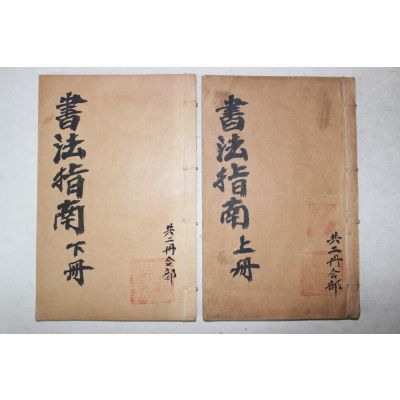 書法指南上冊
共二冊合部
書法指南下冊
共二冊合部